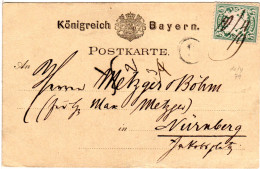 Königreich Bayern.
POSTKARTE.
An
Herrn Metzger Böhm
(fr. Max Metzger)
in Nürnberg
Jakobsplatz